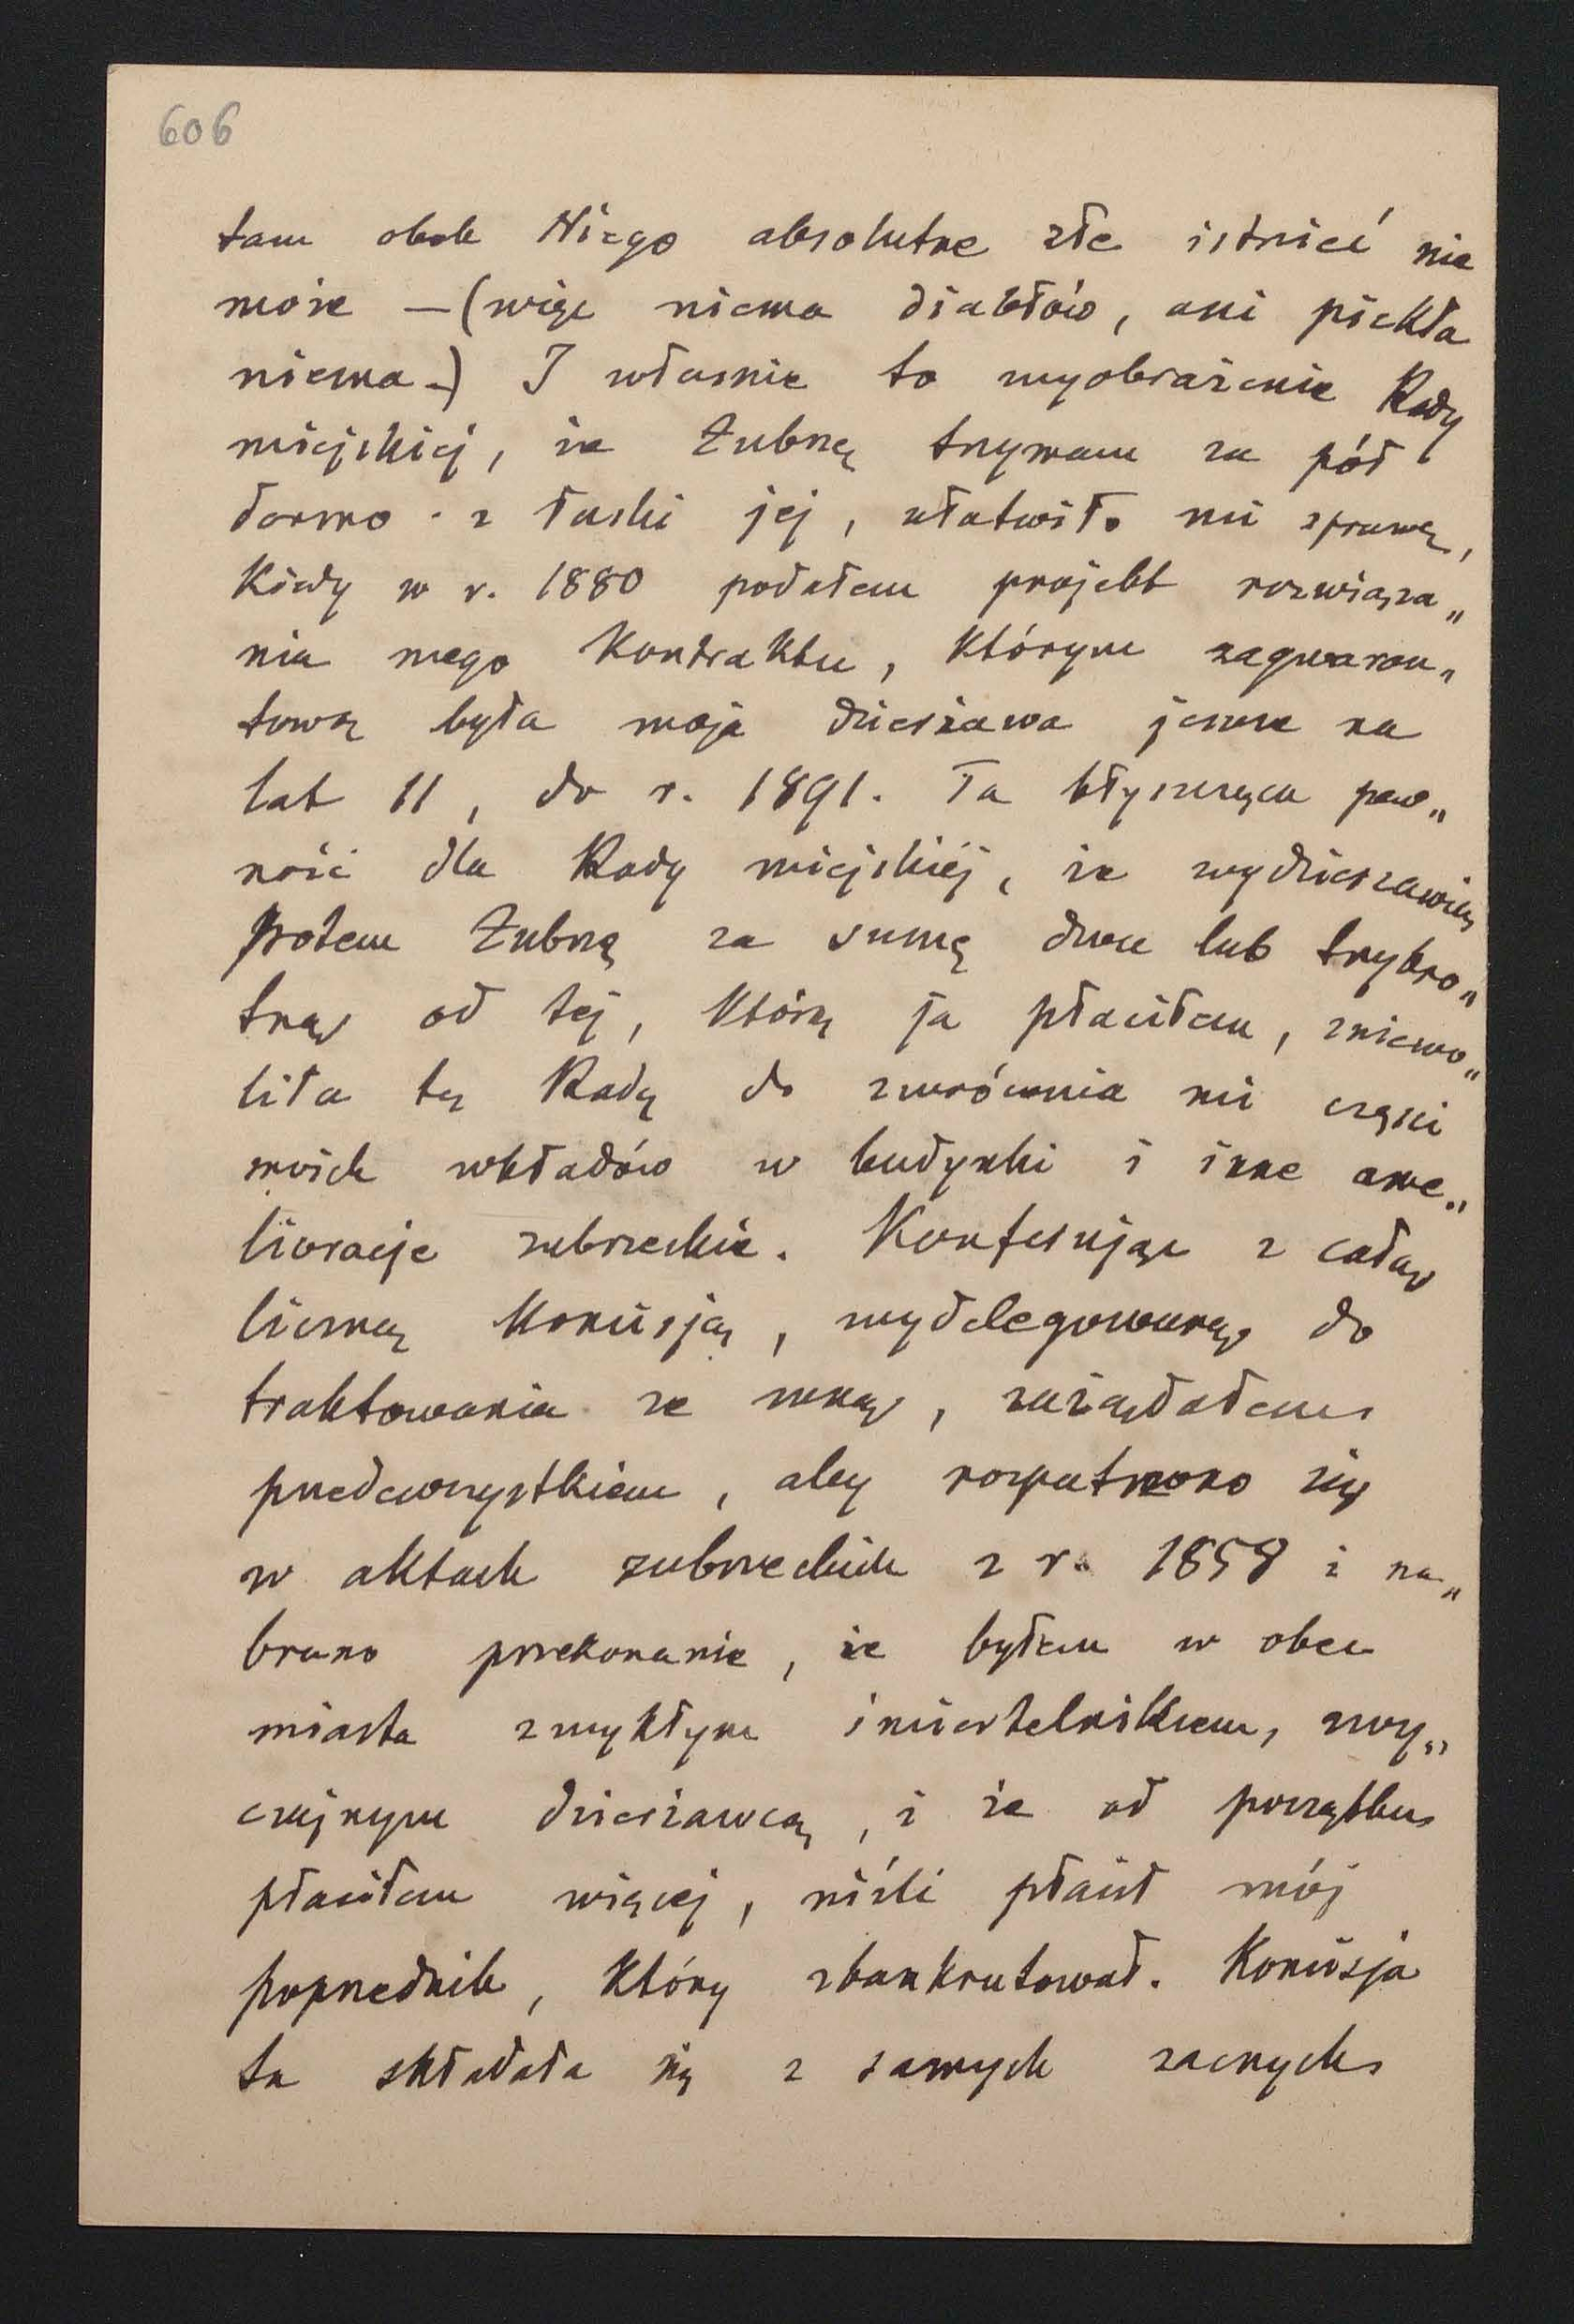 606
tam obok Niego absolutne złe istnieć nie
może — (więc niema diabłów, ani piekła
niema —) I własnie to wyobrażenie Rady
miejskiej, że Zubrzę trzymam za pół
darmo z łaski jej, ułatwiło mi sprawę,
Kiedy w r. 1880 podałem projekt rozwiąza„
nia mego Kontraktu, którym zagwaran„
towaną była moja dzierżawa jeszcze na
lat 11, do r. 1891. Ta błyszcząca pew„
ność dla Rady miejskiéj, że wydzierzawią
potem Zubrzę za sumę dwu lub trzykro„
tną od tej, którą ja płaciłem, zniewo„
liła tę Radę do zwrócenia mi części
moich wkładów w budynki i inne ame„
lioracje zubrzeckie. Konferując z całą
liczną Komisją, wydelegowaną do
traktowania ze mną, zażądałem
przedewszystkiem, aby rozpatrzono się
w aktach zubrzeckich z r. 1858 i na„
brano przekonanie, że byłem w obec
miasta zwykłym śmiertelnikiem, zwy„
czajnym dzierżawcą, i że od początku
płaciłem więcej, niźli płacił mój
poprzednik, który zbankrutował. Komisja
ta składała się z samych zacnych